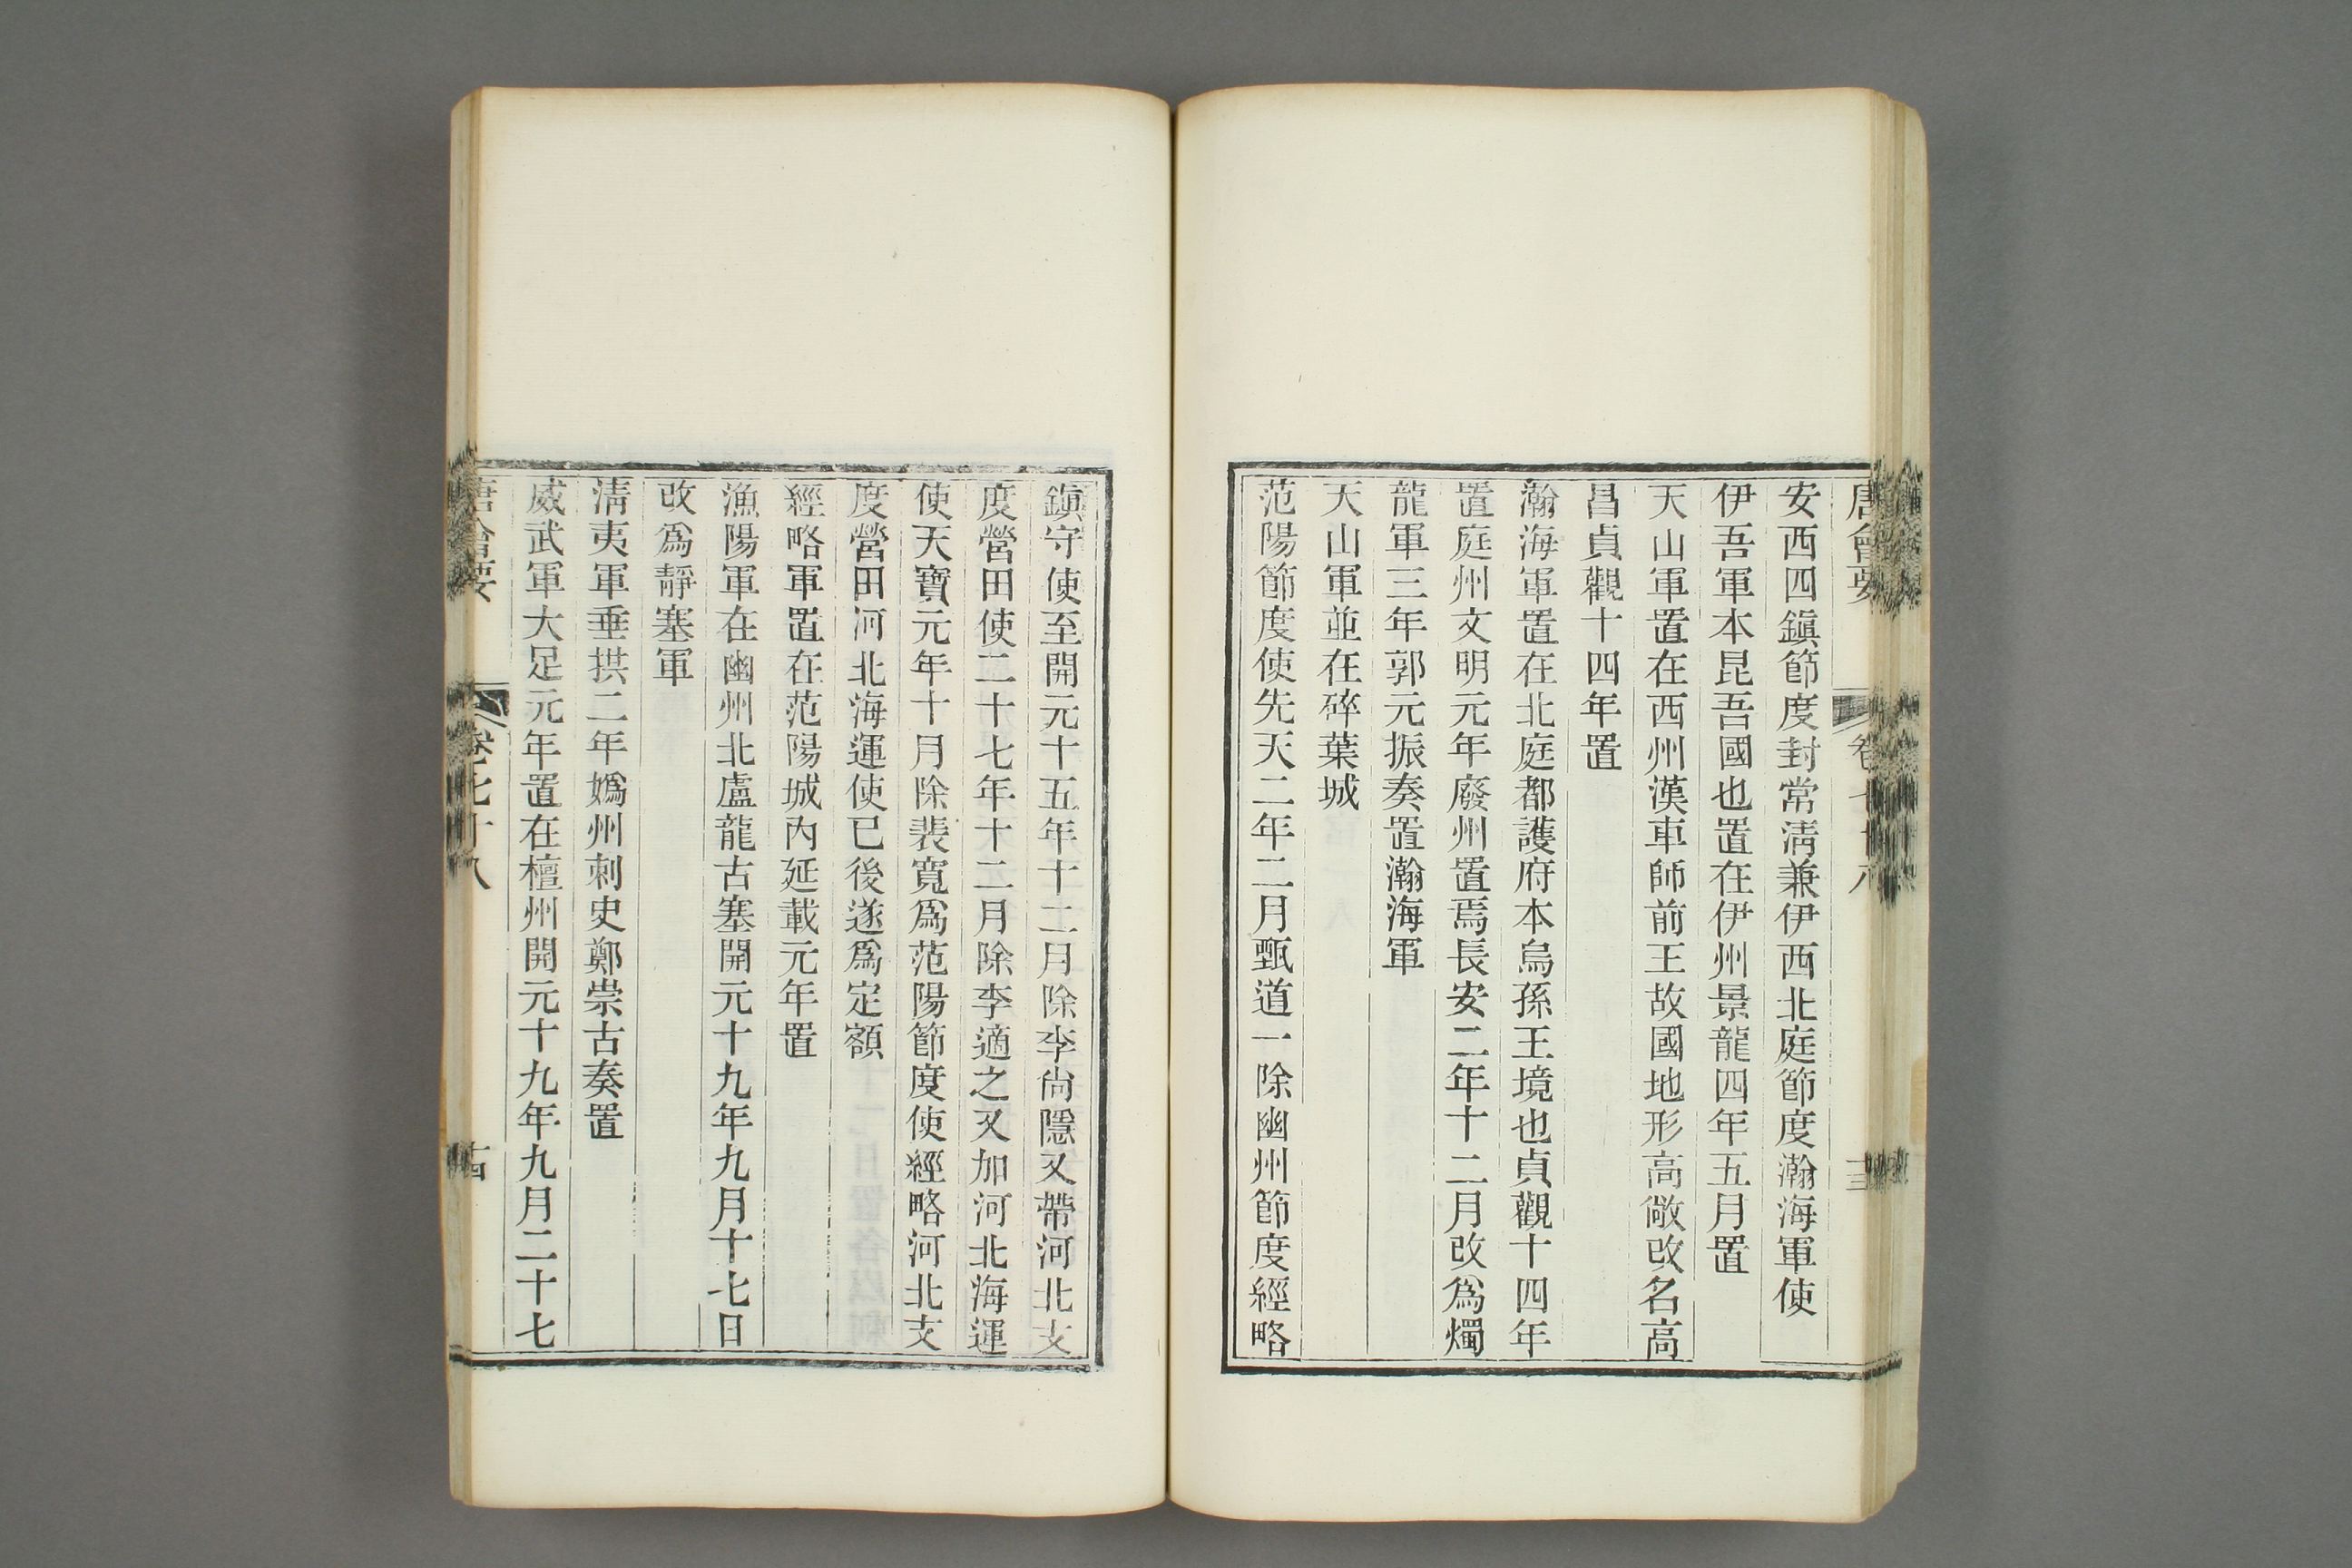 唐會要 卷七十八 十三
安西四鎭節度封常淸兼伊西北庭節度瀚海軍使
伊吾軍本昆吾國也置在伊州景龍四年五月置
天山軍置在西州漢車師前王故國地形高敞改名高
昌貞觀十四年置
瀚海軍置在北庭都護府本烏孫王境也貞觀十四年
置庭州文明元年廢州置焉長安二年十二月改爲燭
龍軍三年郭元振奏置瀚海軍
天山軍並在碎葉城
范陽節度使先天二年二月甄道一除幽州節度經略
鎭守使至開元十五年十二月除李尙隱又帶河北支
度營田使二十七年十二月除李適之又加河北海運
使天寶元年十月除裴寬爲范陽節度使經略河北支
度營田河北海運使已後遂爲定額
經略軍置在范陽城內延載元年置
漁陽軍在幽州北盧龍古塞開元十九年九月十七日
改爲靜塞軍
淸夷軍垂拱二年嬀州刺史鄭崇古奏置
威武軍大足元年置在檀州開元十九年九月二十七
唐會要 卷七十八 十四